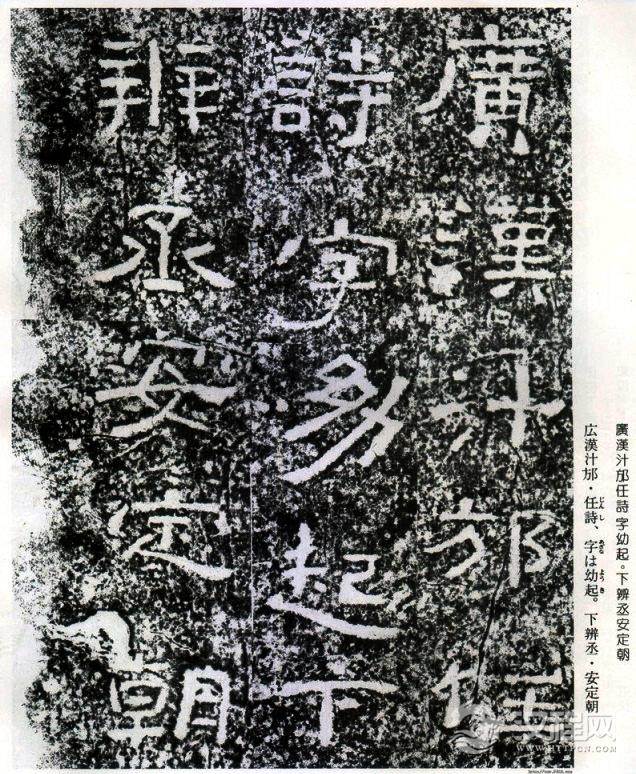 廣漢汁邡任
詩字幼起下
辨丞安定朝
廣漢汁邡任詩字幼起。下辨丞安定朝
広漢汁邡・任詩、字は幼起。下辨丞・安定朝
HTTPCN.COM